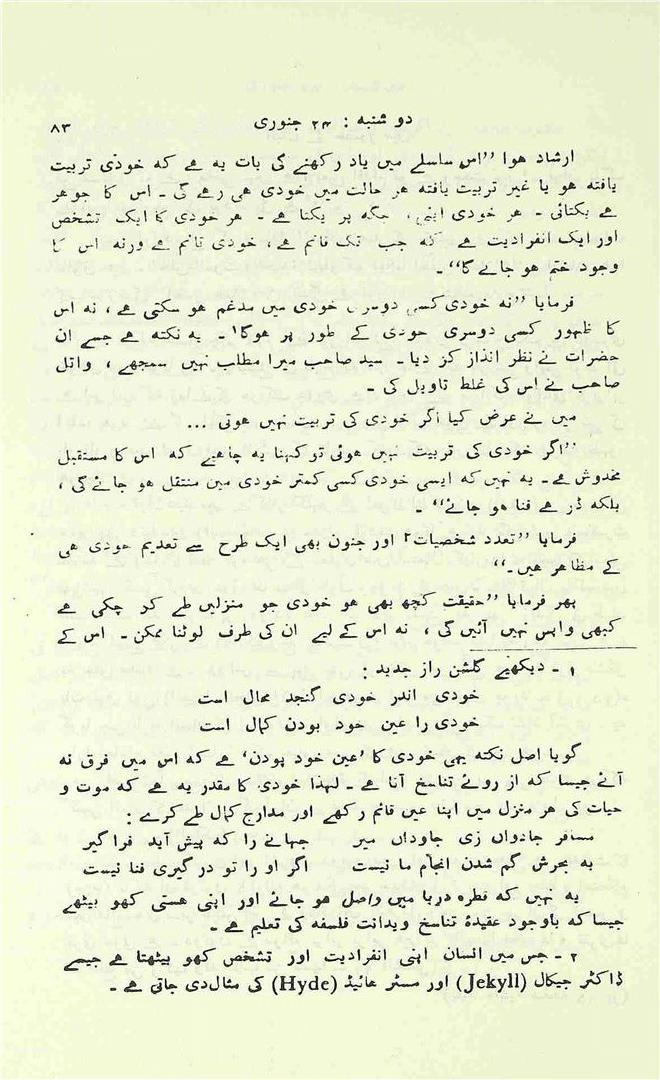 دو شنبہ : ۲۴ جنوری
۸۳
ارشاد ہوا ”اس سلسلے میں یاد رکھنے کی بات یہ ہے کہ خودی تربیت
یافتہ ہو یا غیر تربیت یافتہ ہر حالت میں خودی ہی رہے گی ۔ اس کا جوہر
ہے یکتائی ۔ ہر خودی اپنی جگہ پر یکتا ہے ۔ ہر خودی کا ایک تشخص
اور ایک انفرادیت ہے کہ جب تک قائم ہے ، خودی قائم ہے ورنہ اس کا
وجود ختم ہو جائے گا“ ۔
فرمایا ”نہ خودی کسی دوسری خودی میں مدغم ہو سکتی ہے ، نہ اس
کا ظہور کسی دوسری خودی کے طور پر ہوگا۱ ۔ یہ نکتہ ہے جسے ان
حضرات نے نظر انداز کر دیا ۔ سید صاحب میرا مطلب نہیں سمجھے ، واٹل
صاحب نے اس کی غلط تاویل کی ۔
میں نے عرض کیا اگر خودی کی تربیت نہیں ہوتی ...
”اگر خودی کی تربیت نہیں ہوئی تو کہنا یہ چاہیے کہ اس کا مستقبل
مخدوش ہے ۔ یہ نہیں کہ ایسی خودی کسی کمتر خودی میں منتقل ہو جائے گی ،
بلکہ ڈر ہے فنا ہو جائے“ ۔
فرمایا ”تعدد شخصیات۲ اور جنون بھی ایک طرح سے تعدیم خودی ہی
کے مظاہر ہیں ۔“
پھر فرمایا ”حقیقت کچھ بھی ہو خودی جو منزلیں طے کو چکی ہے
کبھی واپس نہیں آئیں گی ، نہ اس کے لیے ان کی طرف لوٹنا ممکن ۔ اس کے
۱ - دیکھیے گلشن راز جدید :
خودی اندر خودی گنجد محال است
خودی را عین خود بودن کمال است
گویا اصل نکتہ یہی خودی کا ’عین خود بودن‘ ہے کہ اس میں فرق نہ
آئے جیسا کہ از روئے تناسخ آتا ہے ۔ لہذا خودی کا مقدر یہ ہے کہ موت و
حیات کی ہر منزل میں اپنا عین قائم رکھے اور مدارج کمال طے کرے :
مسافر جاوداں زی جاوداں میر جہانے را کہ پیش آید فرا گیر
بہ بحرش گم شدن انجام ما نیست اگر او را تو در گیری فنا نیست
یہ نہیں کہ قطرہ دریا میں واصل ہو جائے اور اپنی ہستی کھو بیٹھے
جیسا کہ باوجود عقیدۂ تناسخ ویدانت فلسفہ کی تعلیم ہے ۔
۲ - جس میں انسان اپنی انفرادیت اور تشخص کھو بیٹھتا ہے جیسے
ڈاکٹر جیکال (Jekyll) اور مسٹر ہائیڈ (Hyde) کی مثال دی جاتی ہے ۔